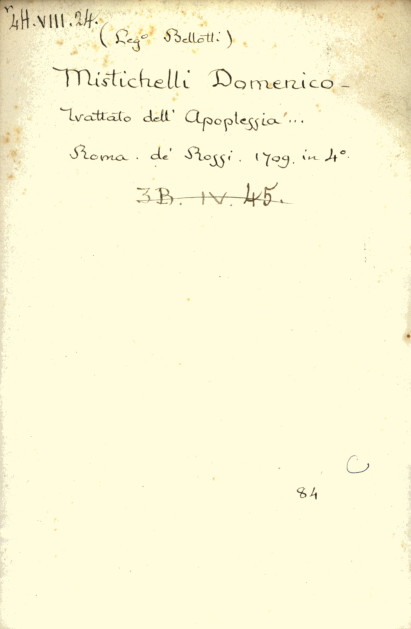 4H.VIII.24.
(Leg.º Bellotti)
Mistichelli Domenico -
Trattato dell' Apoplessia...
Roma. de' Rossi. 1709. in 4º.
3B. IV. 45.
C
84